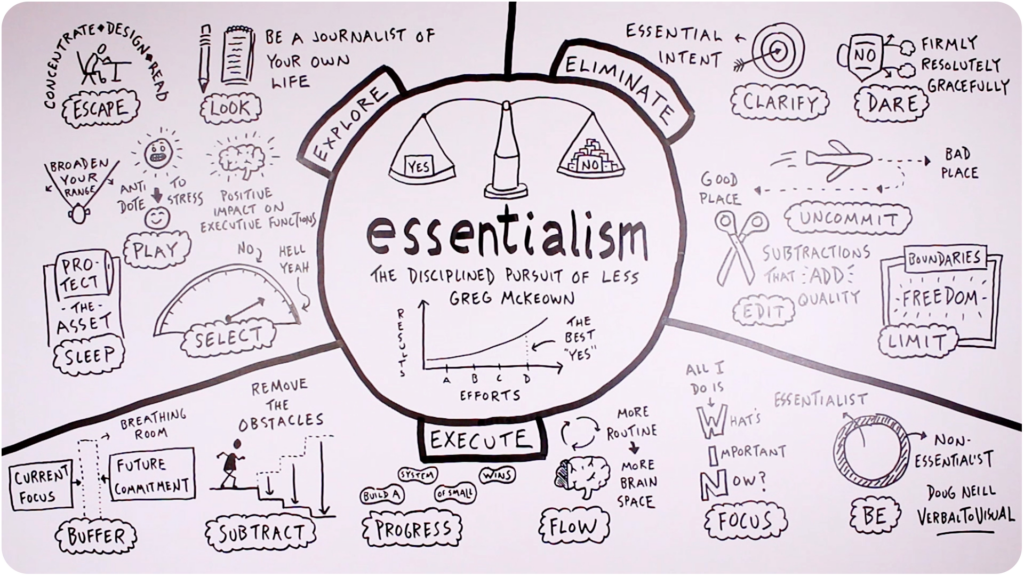 CONCENTRATE • DESIGN • READ
ESCAPE
BE A JOURNALIST OF
YOUR OWN
LIFE
LOOK
EXPLORE
BROADEN
YOUR
RANGE
ANTI
DOTE
TO
STRESS
PLAY
POSITIVE
IMPACT ON
EXECUTIVE FUNCTIONS
PRO-
TECT
-THE-
ASSET
SLEEP
NO
HELL
YEAH
SELECT
YES
NO
essentialism
THE DISCIPLINED PURSUIT OF LESS
GREG McKEOWN
RESULTS
A B C D
EFFORTS
THE
BEST
"YES"
ELIMINATE
ESSENTIAL
INTENT
CLARIFY
NO
FIRMLY
RESOLUTELY
GRACEFULLY
DARE
BAD
PLACE
GOOD
PLACE
UNCOMMIT
SUBTRACTIONS
THAT ADD
QUALITY
EDIT
BOUNDARIES
-FREEDOM-
LIMIT
EXECUTE
BREATHING
ROOM
CURRENT
FOCUS
FUTURE
COMMITMENT
BUFFER
REMOVE
THE
OBSTACLES
SUBTRACT
BUILD A
SYSTEM
OF SMALL
WINS
PROGRESS
MORE
ROUTINE
MORE
BRAIN
SPACE
FLOW
ALL I
DO IS
WHAT'S
IMPORTANT
NOW?
FOCUS
ESSENTIALIST
NON-
ESSENTIALIST
BE
DOUG NEILL
VERBALTOVISUAL